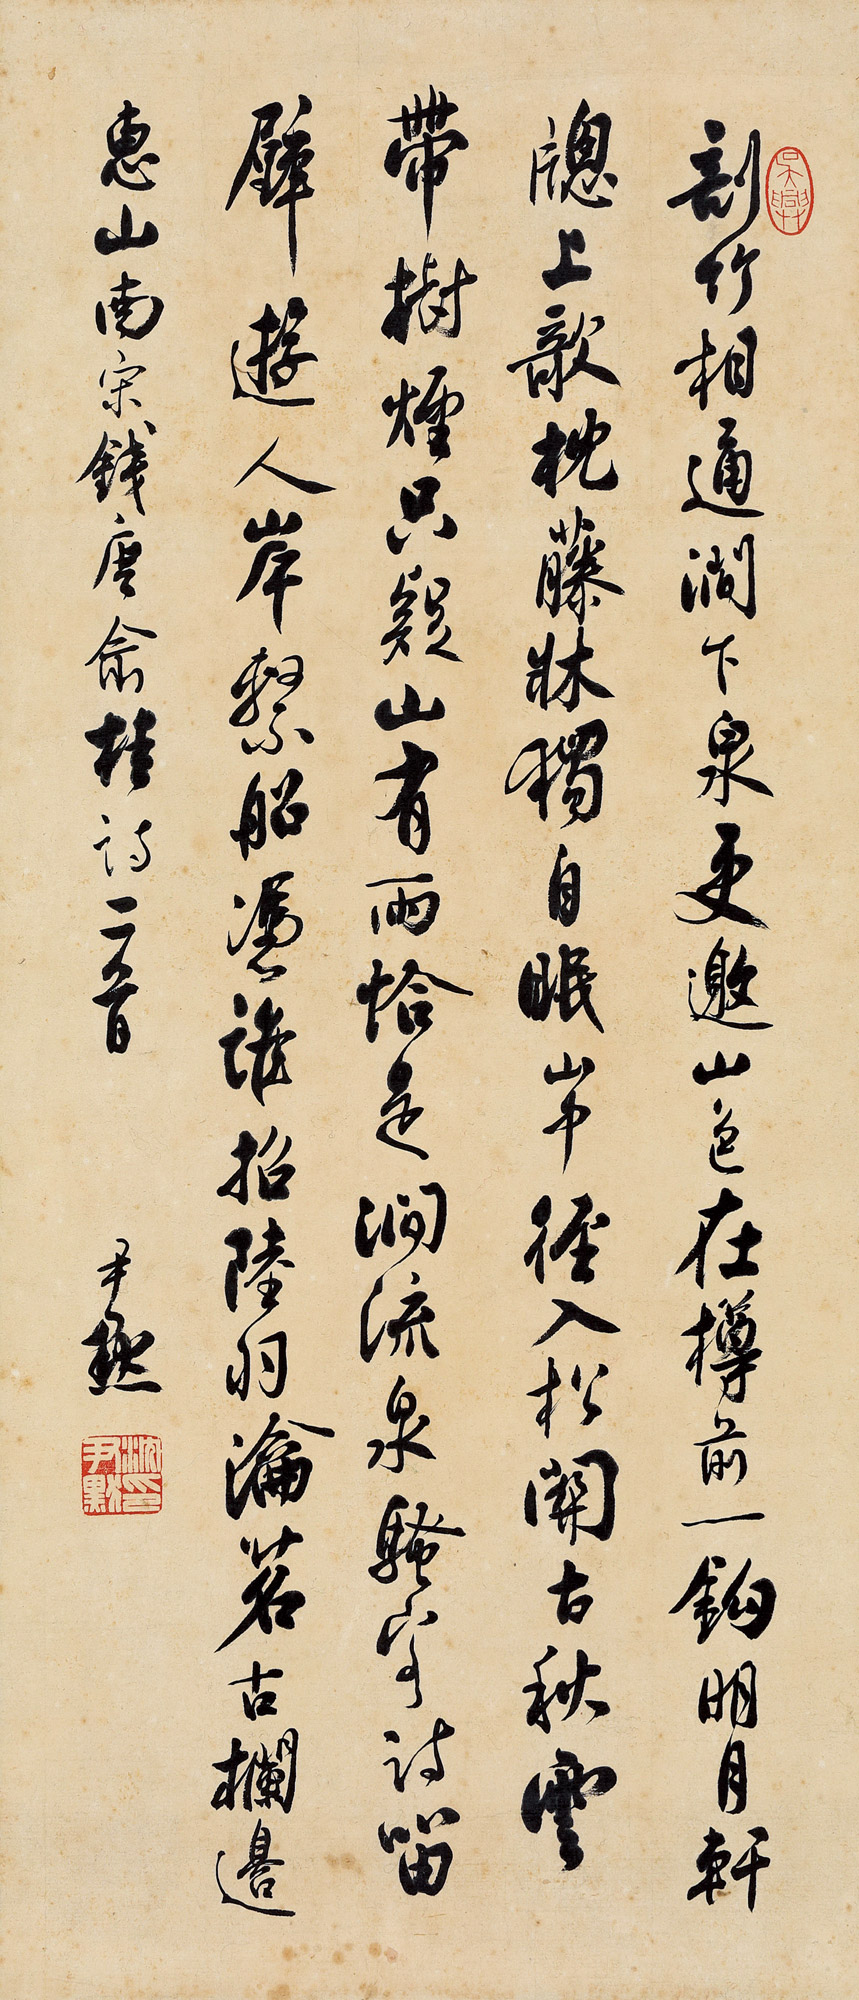 吳興
剖竹相通澗下泉更邀山色在樽前一鉤明月軒
牕上欹枕藤牀獨自眠山中徑入松關古秋雲
帶樹煙只疑山有雨恰是澗流泉騷客詩留
壁遊人岸繫船憑誰招陸羽瀹茗古欄邊
惠山南宋錢唐俞桂詩二首
尹默
沈尹默印